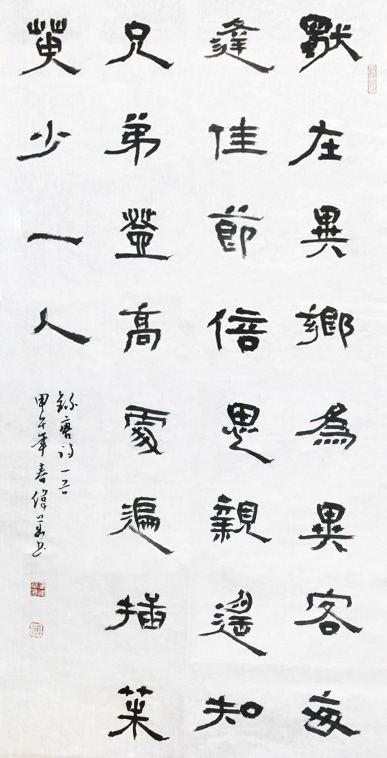 獨在異鄉為異客每
逢佳節倍思親遙知
兄弟登高處遍插茱
萸少一人
錄唐詩一首
甲午年春偉書